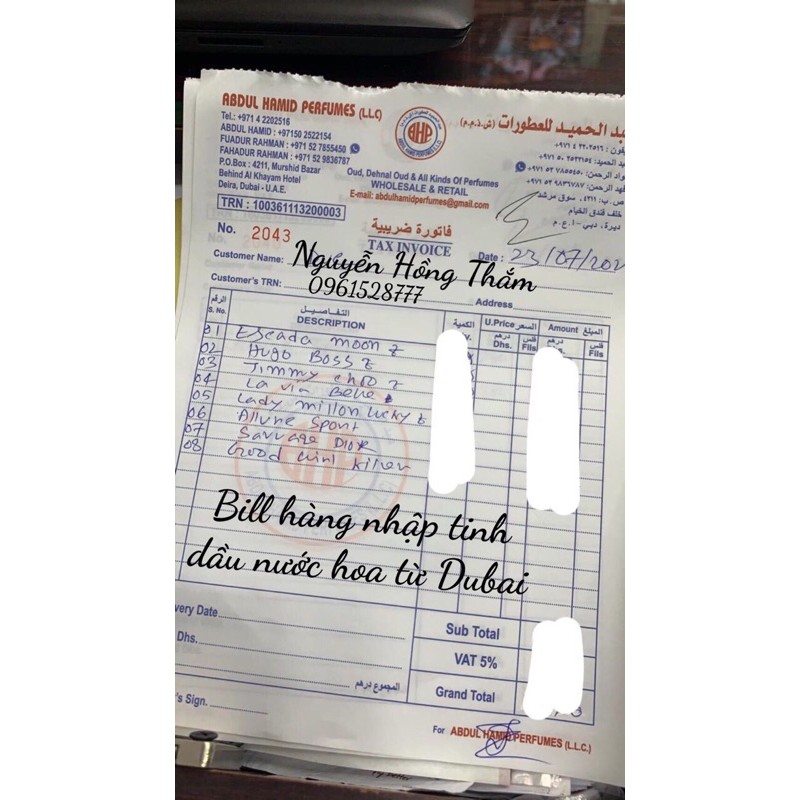 ABDUL HAMID PERFUMES (L.L.C)
Tel.: +971 4 2202516
ABDUL HAMID : +97150 2522154
FUADUR RAHMAN : +971 52 7855450
FAHADUR RAHMAN : +971 52 9836787
P.O.Box : 4211, Murshid Bazar
Behind Al Khayam Hotel
Deira, Dubai - U.A.E.
TRN : 100361113200003
AHP
Oud, Dehnal Oud & All Kinds Of Perfumes
WHOLESALE & RETAIL
E-mail: abdulhamidperfumes@gmail.com
بد الحميد للعطورات (ش.ذ.م.م)
فون : ٢٢٠٢٥١٦ ٤ ٩٧١+
ص.ب: ٤٢١١، سوق مرشد
خلف فندق الخيام
ديرة، دبي - ا.ع.م
فاتورة ضريبية
TAX INVOICE
No. 2043
Date : 23/07/202
Customer Name:
Nguyễn Hồng Thắm
Customer's TRN:
0961528777
Address
الرقم التفاصيل الكمية السعر U.Price المبلغ Amount
S. No. DESCRIPTION درهم Dhs. فلس Fils درهم فلس Fils
01 Escada moon z
02 Hugo Boss z
03 Jimmy choo z
04 La via Belle
05 Lady millon lucky z
06 Allure Sport
07 Savvage Dior
08 Good girl kilian
Bill hàng nhập tinh
dầu nước hoa từ Dubai
very Date
Dhs.
المجموع درهم
's Sign.
Sub Total
VAT 5%
Grand Total
For ABDUL HAMID PERFUMES (L.L.C.)